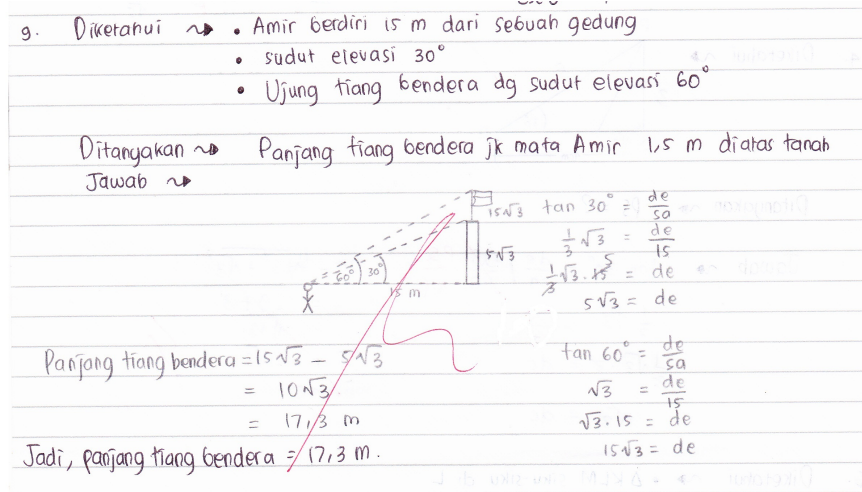 9. Diketahui ⤳ • Amir berdiri 15 m dari sebuah gedung
• sudut elevasi 30°
• Ujung tiang bendera dg sudut elevasi 60°
Ditanyakan ⤳ Panjang tiang bendera jk mata Amir 1,5 m diatas tanah
Jawab ⤳
15√3
5√3
60° 30°
15 m
tan 30° = de/sa
1/3 √3 = de/15
1/3 √3 . 15 5 = de
5√3 = de
Panjang tiang bendera = 15√3 – 5√3
= 10√3
= 17,3 m
Jadi, panjang tiang bendera = 17,3 m.
tan 60° = de/sa
√3 = de/15
√3 . 15 = de
15√3 = de